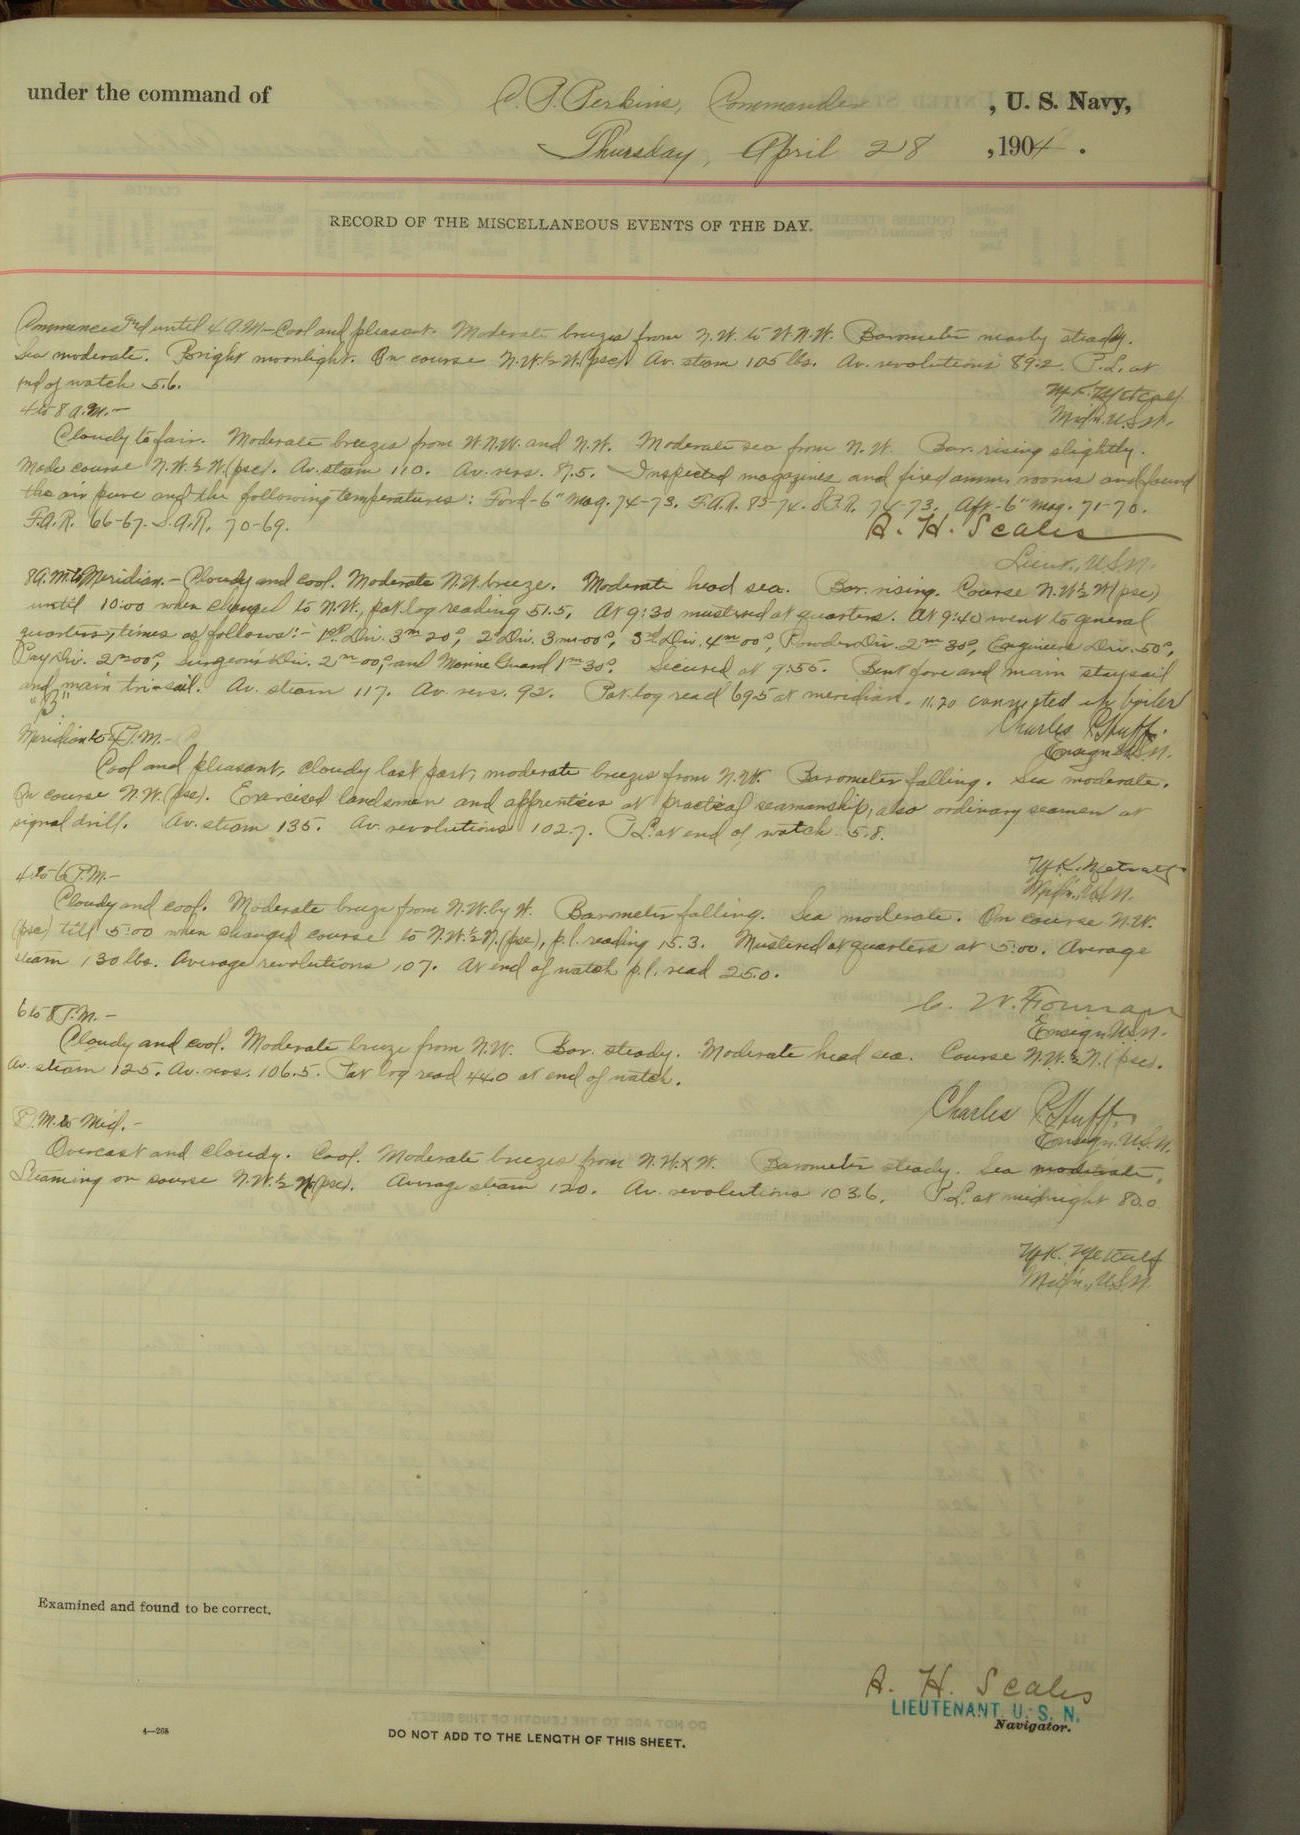 under the command of C. P. Perkins, Commander , U. S. Navy,
Thursday, April 28 , 1904 .
RECORD OF THE MISCELLANEOUS EVENTS OF THE DAY.
Commences and until 4 A.M.— Cool and pleasant. Moderate breezes from N.W. to W.N.W. Barometer nearly steady.
Sea moderate. Bright moonlight. On course N.W.½W.(psc) Av. steam 105 lbs. Av. revolutions 89.2. P.L. at
end of watch 5.6.
W.K. Metcalf
Mid'n. U.S.N.
4 to 8 A.M.—
Cloudy to fair. Moderate breezes from W.N.W. and N.W. Moderate sea from N.W. Bar. rising slightly.
Made course N.W.½W.(psc). Av. steam 110. Av. revs. 87.5. Inspected magazines and fixed ammn. rooms and found
the air pure and the following temperatures: Ford-6" mag. 74-73. F.A.R. 85-74. S.F.R. 74-73. Aft-6" mag. 71-70.
F.A.R. 66-67. S.A.R. 70-69.
A. H. Scales
Lieut., U.S.N.
8 A.M. to Meridian.— Cloudy and cool. Moderate N.W. breeze. Moderate head sea. Bar. rising. Course N.W.½W(psc)
until 10:00 when changed to N.W., pat. log reading 51.5. At 9:30 mustered at quarters. At 9:40 went to general
quarters, times as follows:- 1st Div. 3m 20s, 2d Div. 3m-00s, 3rd Div. 4m 00s, Powder Div. 2m 30s, Engineers Div. 50s,
Pay Div. 2m 00s, Surgeon's Div. 2m 00s, and Marine Guard 1m 30s. Secured at 9:55. Bent fore and main staysail
and main trisail. Av. steam 117. Av. revs. 92. Pat. log read 69.5 at meridian. 11.20 connected up boiler
"B"
Charles P. Huff.
Ensign U.S.N.
Meridian to 4 P.M.—
Cool and pleasant, cloudy last part, moderate breezes from N.W. Barometer falling. Sea moderate.
On course N.W.(psc). Exercised landsmen and apprentices at practical seamanship, also ordinary seamen at
signal drill. Av. steam 135. Av. revolutions 102.7. P.L. at end of watch 5.8.
W.K. Metcalf
Mid'n. U.S.N.
4 to 6 P.M.—
Cloudy and cool. Moderate breeze from N.W. by W. Barometer falling. Sea moderate. On course N.W.
(psc) till 5:00 when changed course to N.W.½N.(psc), p.l. reading 15.3. Mustered at quarters at 5:00. Average
steam 130 lbs. Average revolutions 107. At end of watch p.l. read 25.0.
C. W. Forman
Ensign U.S.N.
6 to 8 P.M.—
Cloudy and cool. Moderate breeze from N.W. Bar. steady. Moderate head sea. Course N.W.½N.(psc).
Av. steam 125. Av. revs. 106.5. Pat log read 44.0 at end of watch.
Charles P. Huff.
Ensign U.S.N.
8 P.M. to Mid.—
Overcast and cloudy. Cool. Moderate breezes from N.W.xW. Barometer steady. Sea moderate.
Steaming on course N.W.½N.(psc). Average steam 120. Av. revolutions 103.6. P.L. at midnight 80.0
W.K. Metcalf
Mid'n., U.S.N.
Examined and found to be correct.
A. H. Scales
LIEUTENANT, U. S. N.
Navigator.
4—208
DO NOT ADD TO THE LENGTH OF THIS SHEET.